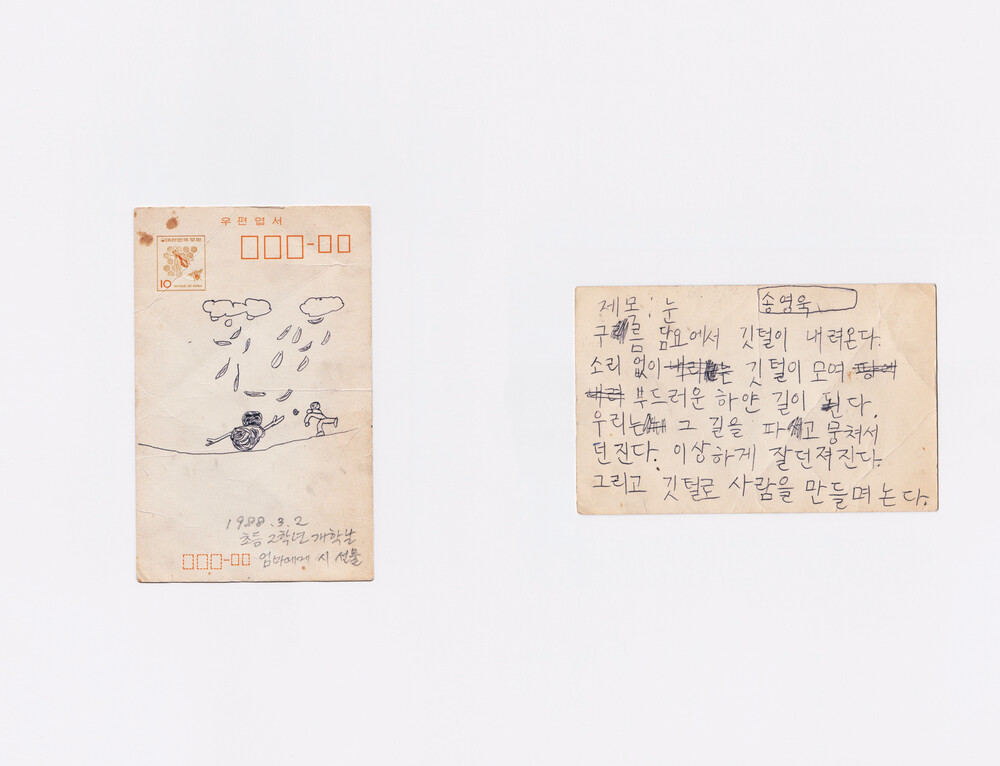 우편엽서
대한민국우편
10
1988.3.2
초등 2학년 개학날
엄마에게 시 선물
제목: 눈
송영욱
구름 담요에서 깃털이 내려온다.
소리 없이 내리는 깃털이 모여 땅에
내려 부드러운 하얀 길이 된다.
우리는 그 길을 파고 뭉쳐서
던진다. 이상하게 잘던져진다.
그리고 깃털로 사람을 만들며 논다.